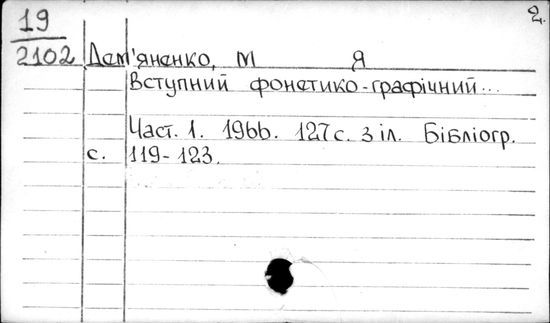 19 2.
2102 Дем'яненко, М Я
Вступний фонетико-графічний...
Част. 1. 1966. 127 с. З іл. Бібліогр.
с. 119-123.